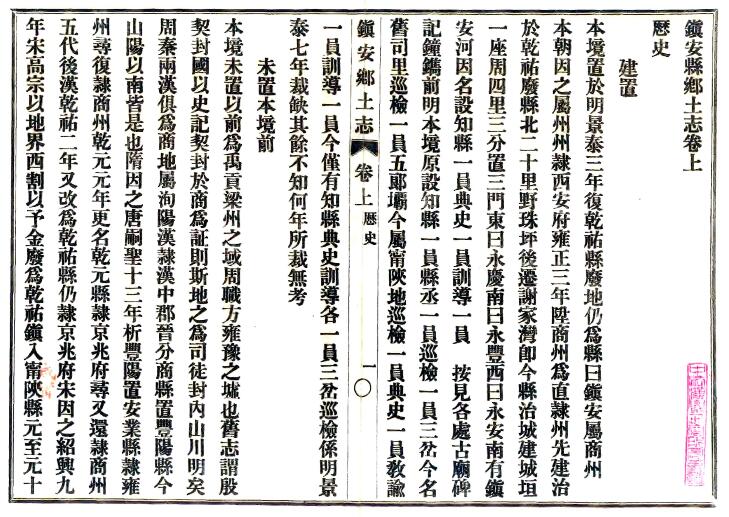 鎭安縣鄉土志卷上
歷史
建置
本境置於明景泰三年復乾祐縣廢地仍爲縣曰鎭安屬商州
本朝因之屬州州隸西安府雍正三年陞商州爲直隸州先建治
於乾祐廢縣北二十里野珠坪後遷謝家灣卽今縣治城建城垣
一座周四里三分置三門東曰永慶南曰永豐西曰永安南有鎭
安河因名設知縣一員典史一員訓導一員 按見各處古廟碑
記鐘鐫前明本境原設知縣一員縣丞一員巡檢一員三岔今名
舊司里巡檢一員五郞壩今屬甯陝地巡檢一員典史一員敎諭
鎭安鄉土志 卷上 歷史 一〇
一員訓導一員今僅有知縣典史訓導各一員三岔巡檢係明景
泰七年裁缺其餘不知何年所裁無考
未置本境前
本境未置以前爲禹貢梁州之域周職方雍豫之墟也舊志謂殷
契封國以史記契封於商爲証則斯地之爲司徒封內山川明矣
周秦兩漢俱爲商地屬洵陽漢隸漢中郡晉分商縣置豐陽縣今
山陽以南皆是也隋因之唐嗣聖十三年析豐陽置安業縣隸雍
州尋復隸商州乾元元年更名乾元縣隸京兆府尋又還隸商州
五代後漢乾祐二年又改爲乾祐縣仍隸京兆府宋因之紹興九
年宋高宗以地界西割以予金廢爲乾祐鎭入甯陝縣元至元十